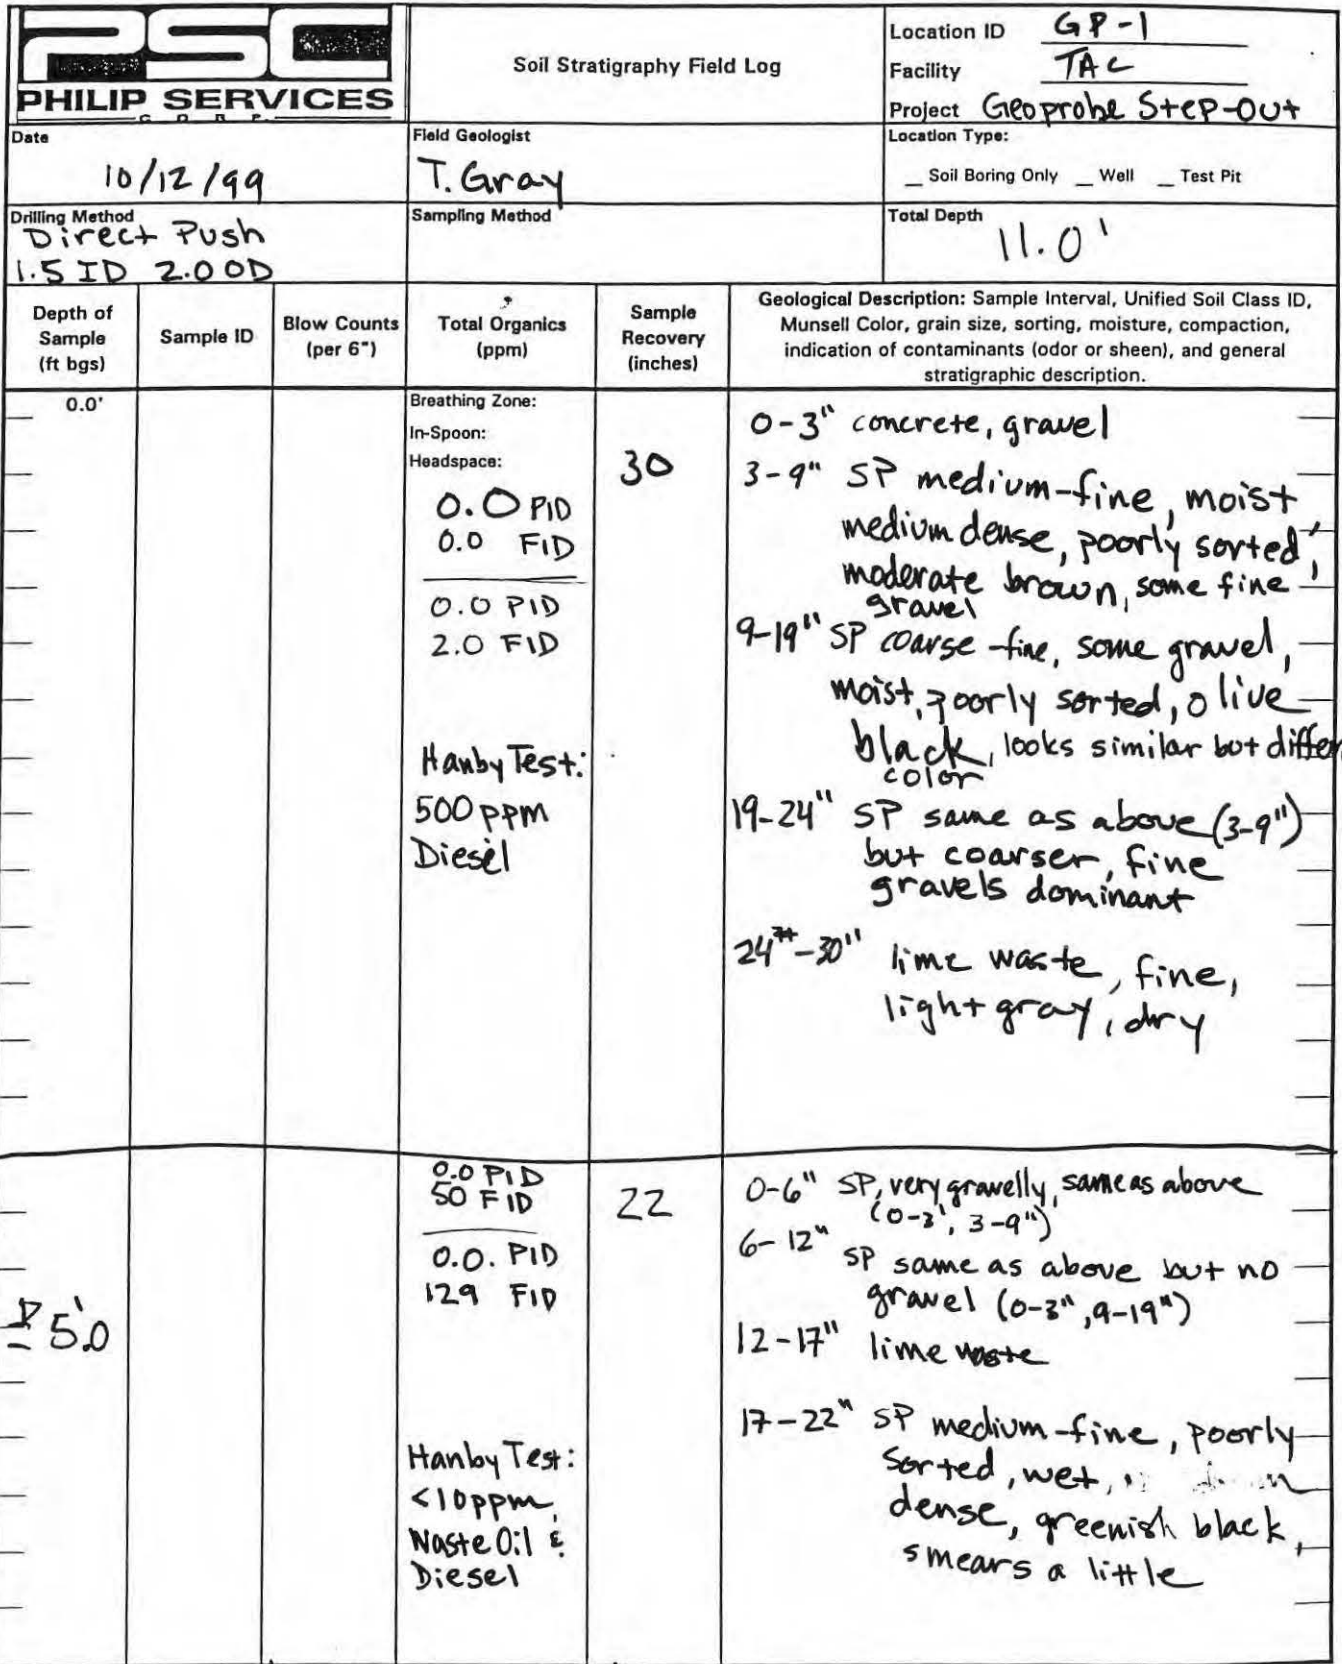 PSC
PHILIP SERVICES
CORP.
Soil Stratigraphy Field Log
Location ID GP-1
Facility TAC
Project Geoprobe Step-Out
Date
10/12/99
Field Geologist
T. Gray
Location Type:
_ Soil Boring Only _ Well _ Test Pit
Drilling Method
Direct Push
1.5 ID 2.0 OD
Sampling Method
Total Depth
11.0'
Depth of
Sample
(ft bgs)
Sample ID
Blow Counts
(per 6")
Total Organics
(ppm)
Sample
Recovery
(inches)
Geological Description: Sample Interval, Unified Soil Class ID,
Munsell Color, grain size, sorting, moisture, compaction,
indication of contaminants (odor or sheen), and general
stratigraphic description.
0.0'
Breathing Zone:
In-Spoon:
Headspace:
0.0 PID
0.0 FID
0.0 PID
2.0 FID
Hanby Test:
500 ppm
Diesel
30
0-3" concrete, gravel
3-9" SP medium-fine, moist
medium dense, poorly sorted,
moderate brown, some fine
gravel
9-19" SP coarse-fine, some gravel,
moist, poorly sorted, olive
black, looks similar but differ
color
19-24" SP same as above (3-9")
but coarser, fine
gravels dominant
24-30" lime waste, fine,
light gray, dry
5.0'
0.0 PID
50 FID
0.0. PID
129 FID
Hanby Test:
<10ppm,
Waste Oil &
Diesel
22
0-6" SP, very gravelly, same as above
(0-3', 3-9")
6-12" SP same as above but no
gravel (0-3", 9-19")
12-17" lime waste
17-22" SP medium-fine, poorly
sorted, wet,
dense, greenish black,
smears a little